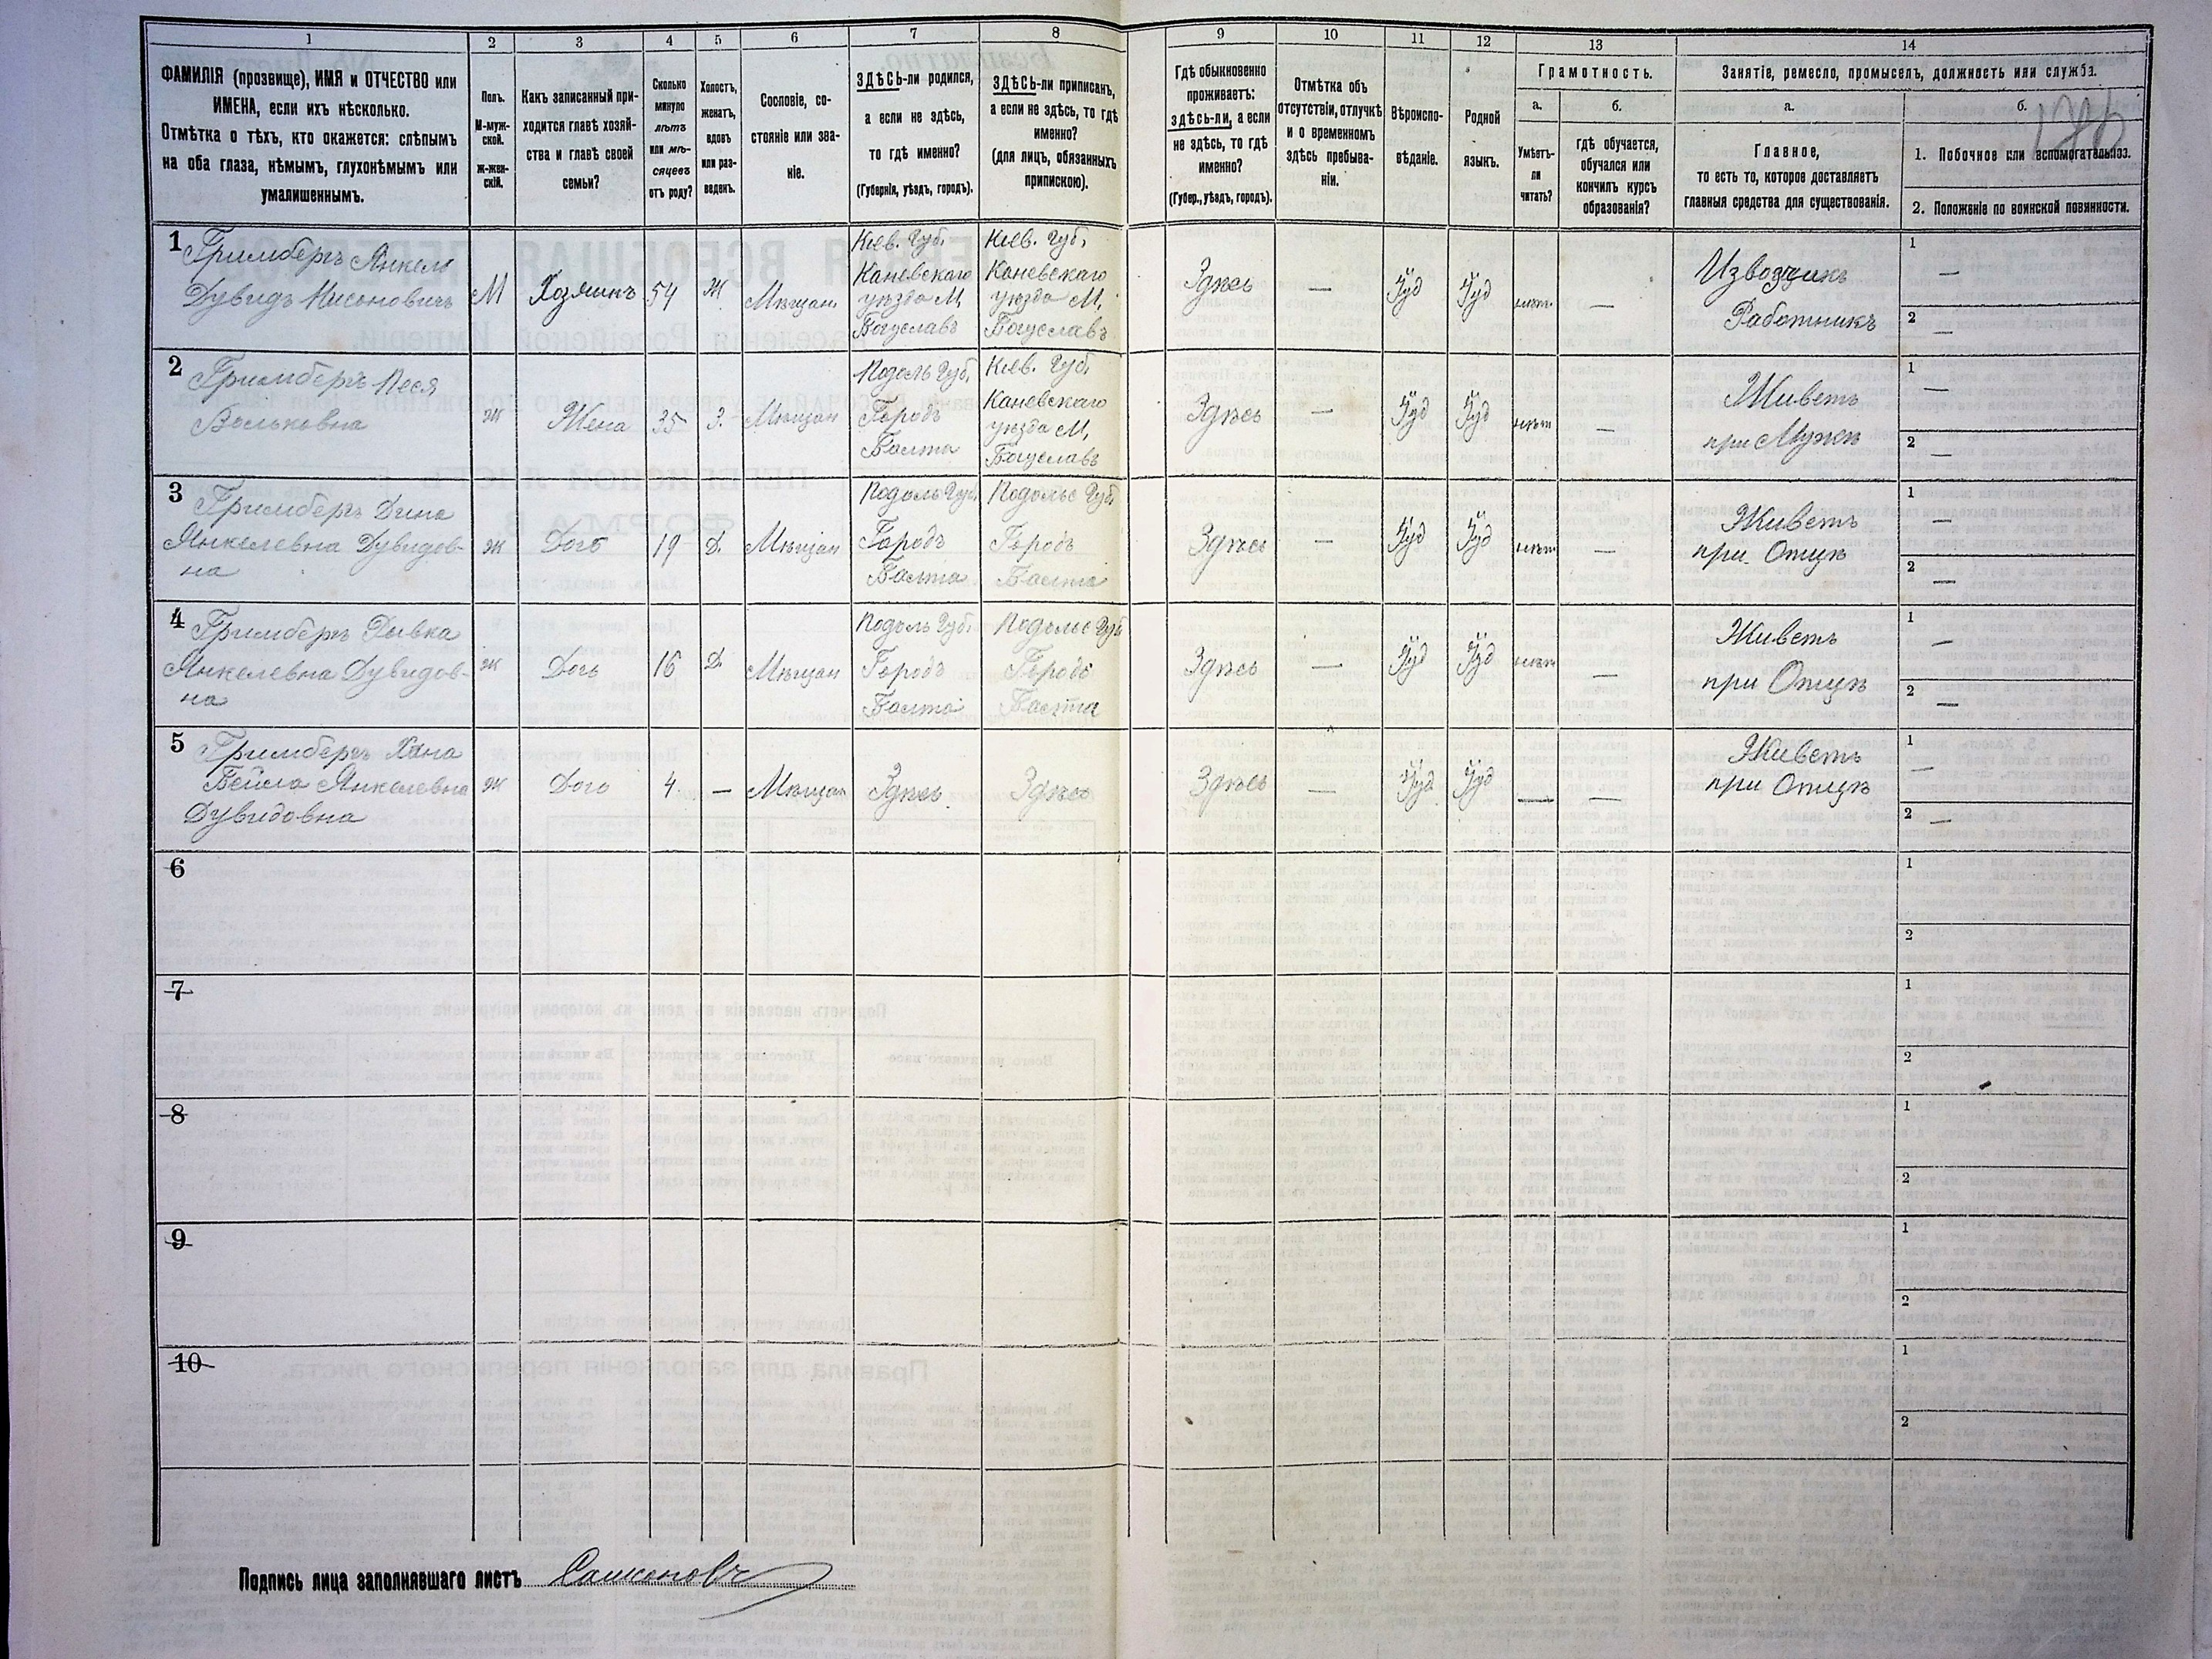 1 2 3 4 5 6 7 8 9 10 11 12 13 14
ФАМИЛІЯ (прозвище), ИМЯ и ОТЧЕСТВО или
ИМЕНА, если ихъ нѣсколько.
Отмѣтка о тѣхъ, кто окажется: слѣпымъ
на оба глаза, нѣмымъ, глухонѣмымъ или
умалишеннымъ.
Полъ.
М-муж-
ской.
ж-жен-
скій.
Какъ записанный при-
ходится главѣ хозяй-
ства и главѣ своей
семьи?
Сколько
минуло
лѣтъ
или мѣ-
сяцевъ
отъ роду?
Холостъ,
женатъ,
вдовъ
или раз-
веденъ.
Сословіе, со-
стояніе или зва-
ніе.
ЗДѢСЬ-ли родился,
а если не здѣсь,
то гдѣ именно?
(Губернія, уѣздъ, городъ).
ЗДѢСЬ-ли приписанъ,
а если не здѣсь, то гдѣ
именно?
(для лицъ, обязанныхъ
припискою).
Гдѣ обыкновенно
проживаетъ:
здѣсь-ли, а если
не здѣсь, то гдѣ
именно?
(Губер., уѣздъ, городъ).
Отмѣтка объ
отсутствіи, отлучкѣ
и о временномъ
здѣсь пребыва-
ніи.
Вѣроиспо-
вѣданіе.
Родной
языкъ.
Грамотность.
а.
Умѣетъ-
ли
читать?
б.
гдѣ обучается,
обучался или
кончилъ курсъ
образованія?
Занятіе, ремесло, промыселъ, должность или служба.
а.
Главное,
то есть то, которое доставляетъ
главныя средства для существованія.
б.
1. Побочное или вспомогательное.
2. Положеніе по воинской повинности.
1
Гримбергъ Янкель
Дувидъ Нисоновичъ
М
Хозяинъ
54
Ж
Мѣщан
Кіев. Губ.
Каневскаго
уѣзда М,
Богуславъ
Кіев. Губ,
Каневскаго
уѣзда М,
Богуславъ
Здѣсь
—
Іуд
Іуд
нѣтъ
—
Извозчикъ
Работникъ
1 —
2 —
2
Гримбергъ Песя
Вольковна
Ж
Жена
35
З.
Мѣщан
Подоль Губ,
Городъ
Балта
Кіев. Губ,
Каневскаго
уѣзда М,
Богуславъ
Здѣсь
—
Іуд
Іуд
нѣтъ
—
Живетъ
при Мужѣ
1 —
2 —
3
Гримбергъ Дина
Янкелевна Дувидов-
на
Ж
Дочь
19
Д.
Мѣщан
Подоль Губ,
Городъ
Балта
Подольс Губ,
Городъ
Балта
Здѣсь
—
Іуд
Іуд
нѣтъ
—
Живетъ
при Отцѣ
1 —
2 —
4
Гримбергъ Рывка
Янкелевна Дувидов-
на
Ж
Дочь
16
Д.
Мѣщан
Подоль Губ,
Городъ
Балта
Подольс Губ
Городъ
Балта
Здѣсь
—
Іуд
Іуд
нѣтъ
—
Живетъ
при Отцѣ
1 —
2 —
5
Гримбергъ Хана
Бейла Янкелевна
Дувидовна
Ж
Дочь
4
—
Мѣщан
Здѣсь
Здѣсь
Здѣсь
—
Іуд
Іуд
—
—
Живетъ
при Отцѣ
1 —
2 —
6
1
2
7
1
2
8
1
2
9
1
2
10
1
2
Подпись лица заполнявшаго листъ